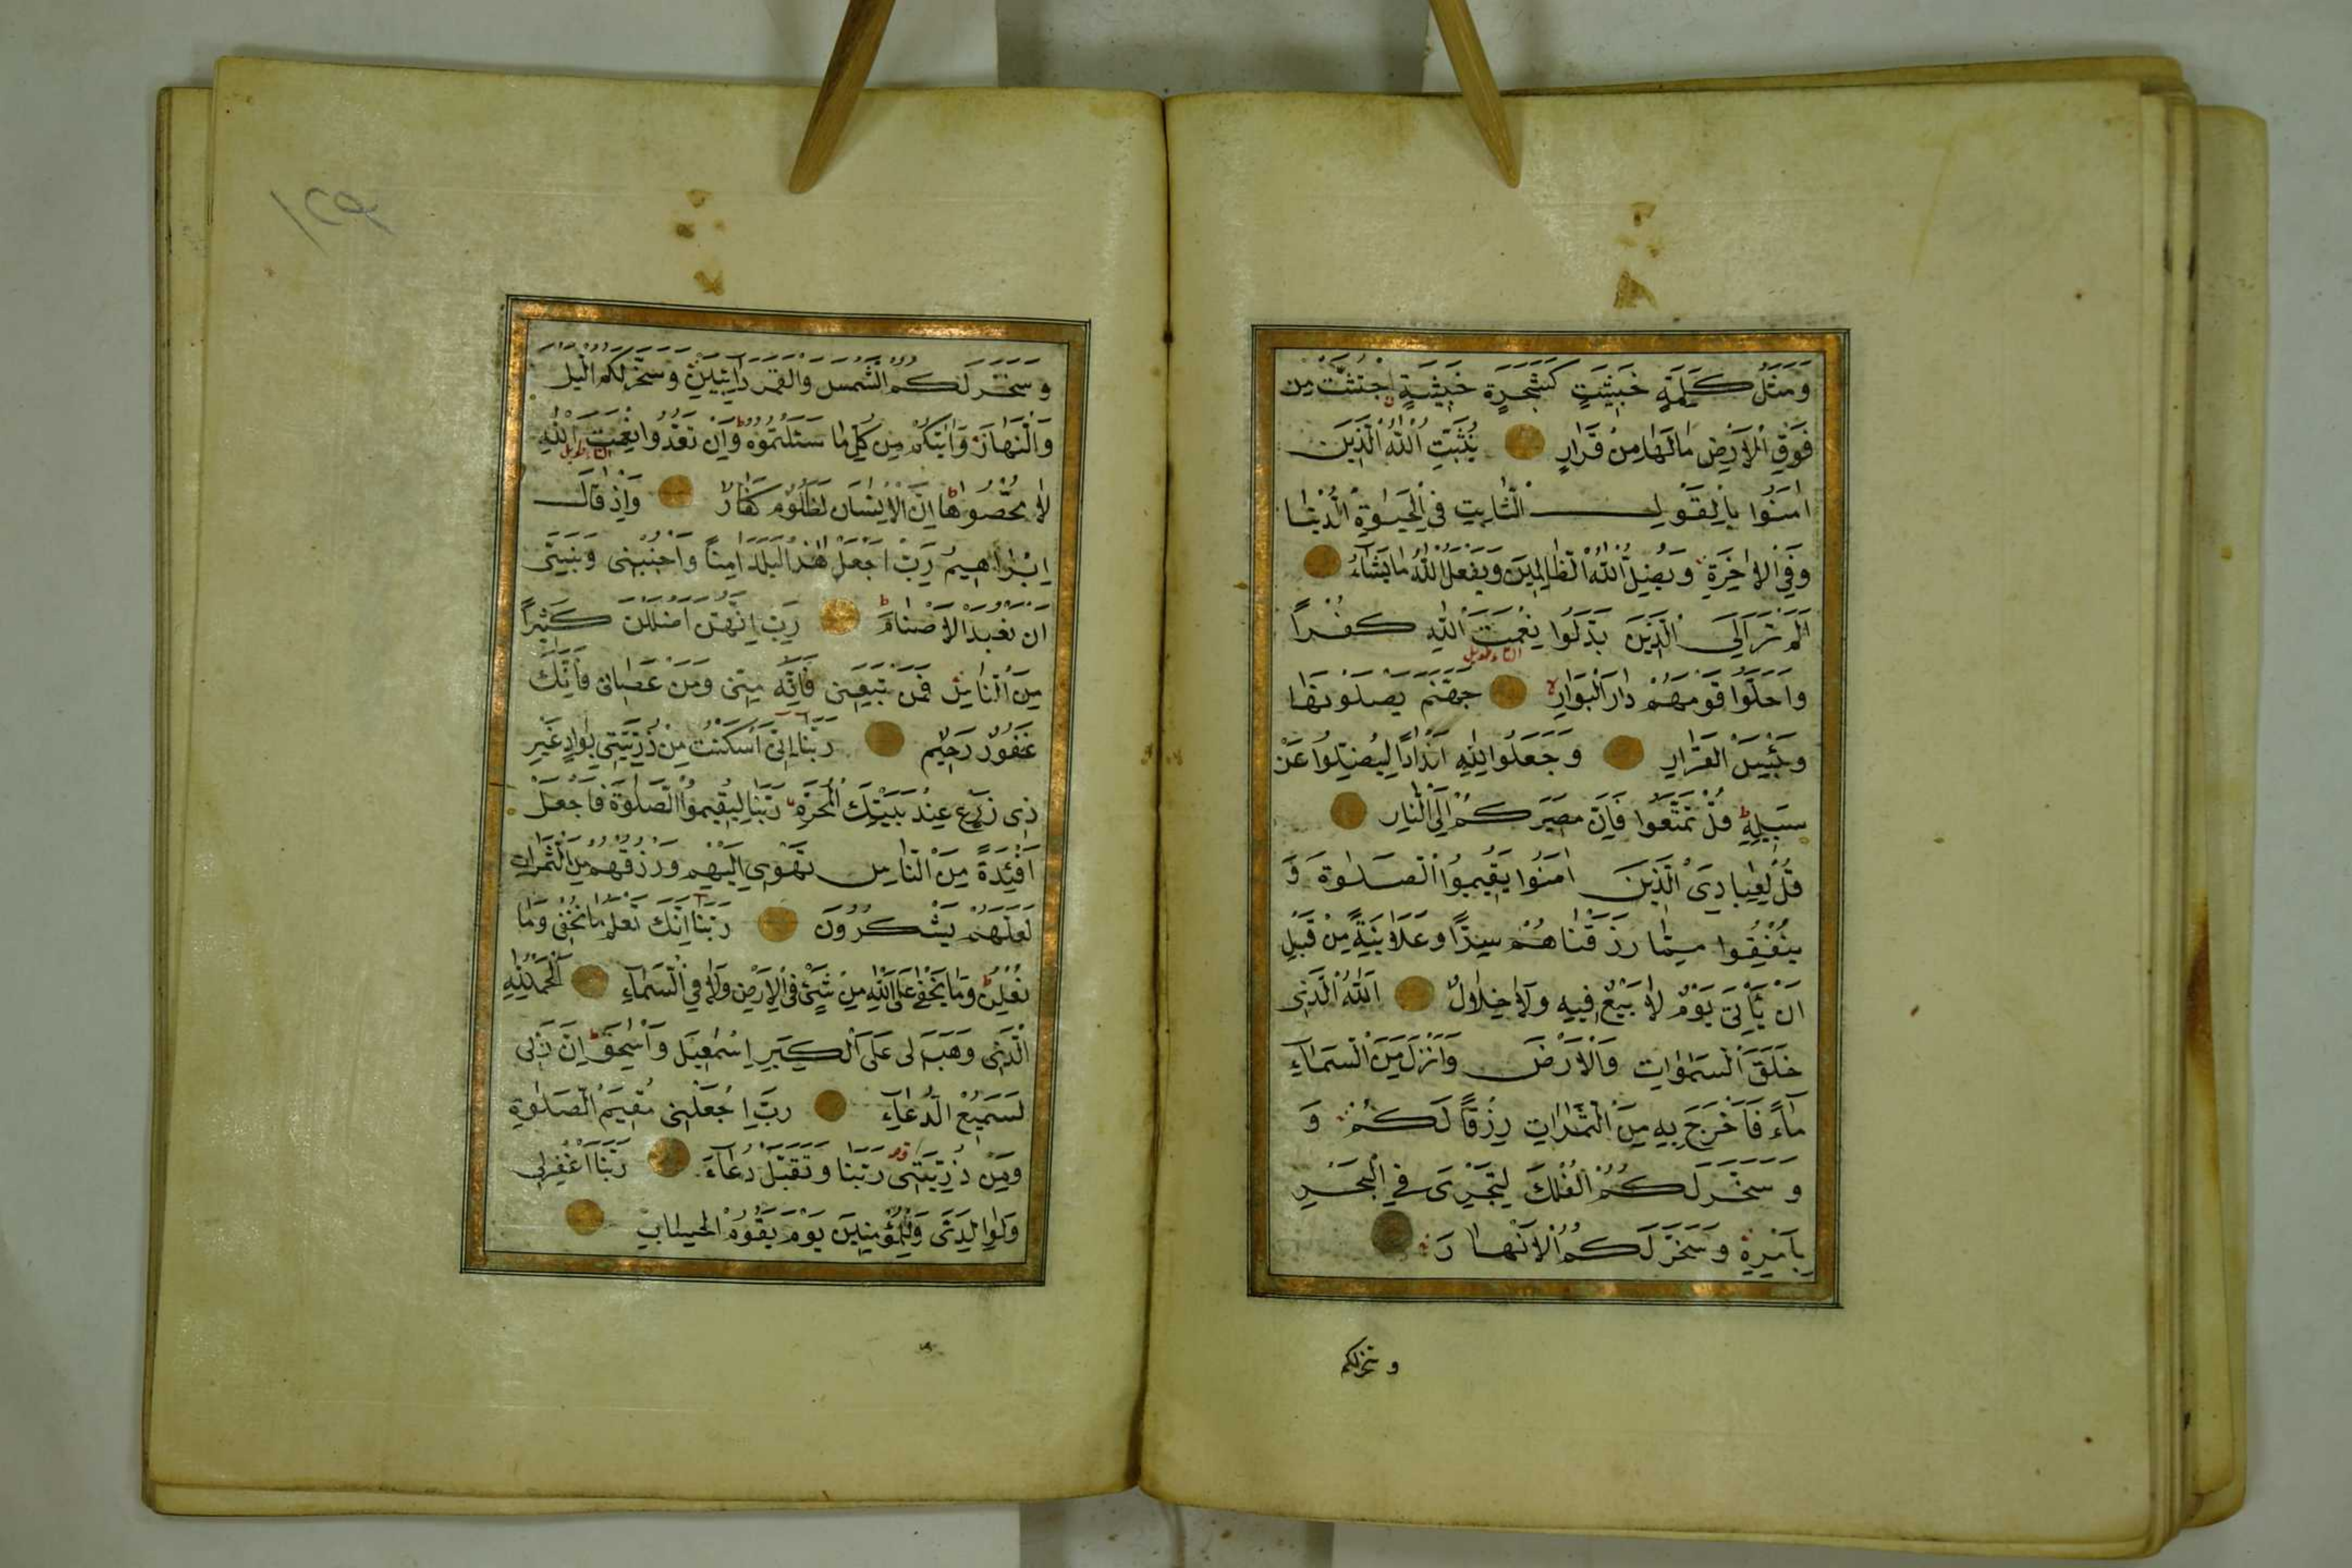 وَمَثَلُ كَلِمَةٍ خَبِيثَةٍ كَشَجَرَةٍ خَبِيثَةٍ اجْتُثَّتْ مِن
فَوْقِ الْاَرْضِ مَا لَهَا مِنْ قَرَارٍ يُثَبِّتُ اللّٰهُ الَّذِينَ
اٰمَنُوا بِالْقَوْلِ الثَّابِتِ فِي الْحَيٰوةِ الدُّنْيَا
وَفِي الْاٰخِرَةِ وَيُضِلُّ اللّٰهُ الظَّالِمِينَ وَيَفْعَلُ اللّٰهُ مَا يَشَاءُ
اَلَمْ تَرَ اِلَى الَّذِينَ بَدَّلُوا نِعْمَتَ اللّٰهِ كُفْراً
وَاَحَلُّوا قَوْمَهُمْ دَارَ الْبَوَارِ جَهَنَّمَ يَصْلَوْنَهَا
وَبِئْسَ الْقَرَارِ وَجَعَلُوا لِلّٰهِ اَنْدَاداً لِيُضِلُّوا عَنْ
سَبِيلِهِ قُلْ تَمَتَّعُوا فَاِنَّ مَصِيرَكُمْ اِلَى النَّارِ
قُلْ لِعِبَادِيَ الَّذِينَ اٰمَنُوا يُقِيمُوا الصَّلٰوةَ وَ
يُنْفِقُوا مِمَّا رَزَقْنَاهُمْ سِرًّا وَعَلَانِيَةً مِنْ قَبْلِ
اَنْ يَأْتِيَ يَوْمٌ لَا بَيْعٌ فِيهِ وَلَا خِلَالٌ اَللّٰهُ الَّذِي
خَلَقَ السَّمٰوَاتِ وَالْاَرْضَ وَاَنْزَلَ مِنَ السَّمَاءِ
مَاءً فَاَخْرَجَ بِهِ مِنَ الثَّمَرَاتِ رِزْقاً لَكُمْ وَ
وَ سَخَّرَ لَكُمُ الْفُلْكَ لِتَجْرِيَ فِي الْبَحْرِ
بِاَمْرِهِ وَسَخَّرَ لَكُمُ الْاَنْهَارَ
و سخرلكم
١٢٩
وَسَخَّرَ لَكُمُ الشَّمْسَ وَالْقَمَرَ دَائِبَيْنِ وَسَخَّرَ لَكُمُ الَّيْلَ
وَالنَّهَارَ وَاٰتٰيكُمْ مِنْ كُلِّ مَا سَئَلْتُمُوهُ وَاِنْ تَعُدُّوا نِعْمَتَ اللّٰهِ
لَا تُحْصُوهَا اِنَّ الْاِنْسَانَ لَظَلُومٌ كَفَّارٌ وَاِذْ قَالَ
اِبْرَاهِيمُ رَبِّ اجْعَلْ هٰذَا الْبَلَدَ اٰمِناً وَاجْنُبْنِي وَبَنِيَّ
اَنْ نَعْبُدَ الْاَصْنَامَ رَبِّ اِنَّهُنَّ اَضْلَلْنَ كَثِيراً
مِنَ النَّاسِ فَمَنْ تَبِعَنِي فَاِنَّهُ مِنِّي وَمَنْ عَصَانِي فَاِنَّكَ
غَفُورٌ رَحِيمٌ رَبَّنَا اِنِّي اَسْكَنْتُ مِنْ ذُرِّيَّتِي بِوَادٍ غَيْرِ
ذِي زَرْعٍ عِنْدَ بَيْتِكَ الْمُحَرَّمِ رَبَّنَا لِيُقِيمُوا الصَّلٰوةَ فَاجْعَلْ
اَفْئِدَةً مِنَ النَّاسِ تَهْوِي اِلَيْهِمْ وَرْزُقْهُمْ مِنَ الثَّمَرَاتِ
لَعَلَّهُمْ يَشْكُرُونَ رَبَّنَا اِنَّكَ تَعْلَمُ مَا نُخْفِي وَمَا
نُعْلِنُ وَمَا يَخْفٰى عَلَى اللّٰهِ مِنْ شَيْءٍ فِي الْاَرْضِ وَلَا فِي السَّمَاءِ اَلْحَمْدُ لِلّٰهِ
الَّذِي وَهَبَ لِي عَلَى الْكِبَرِ اِسْمٰعِيلَ وَاِسْحٰقَ اِنَّ رَبِّي
لَسَمِيعُ الدُّعَاءِ رَبِّ اجْعَلْنِي مُقِيمَ الصَّلٰوةِ
وَمِنْ ذُرِّيَّتِي رَبَّنَا وَتَقَبَّلْ دُعَاءَ رَبَّنَا اغْفِرْ لِي
وَلِوَالِدَيَّ وَلِلْمُؤْمِنِينَ يَوْمَ يَقُومُ الْحِسَابُ